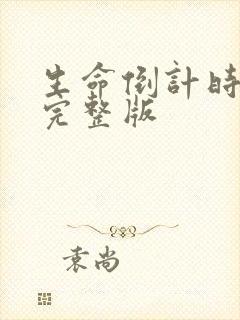 生命倒計時
完整版
袁尚